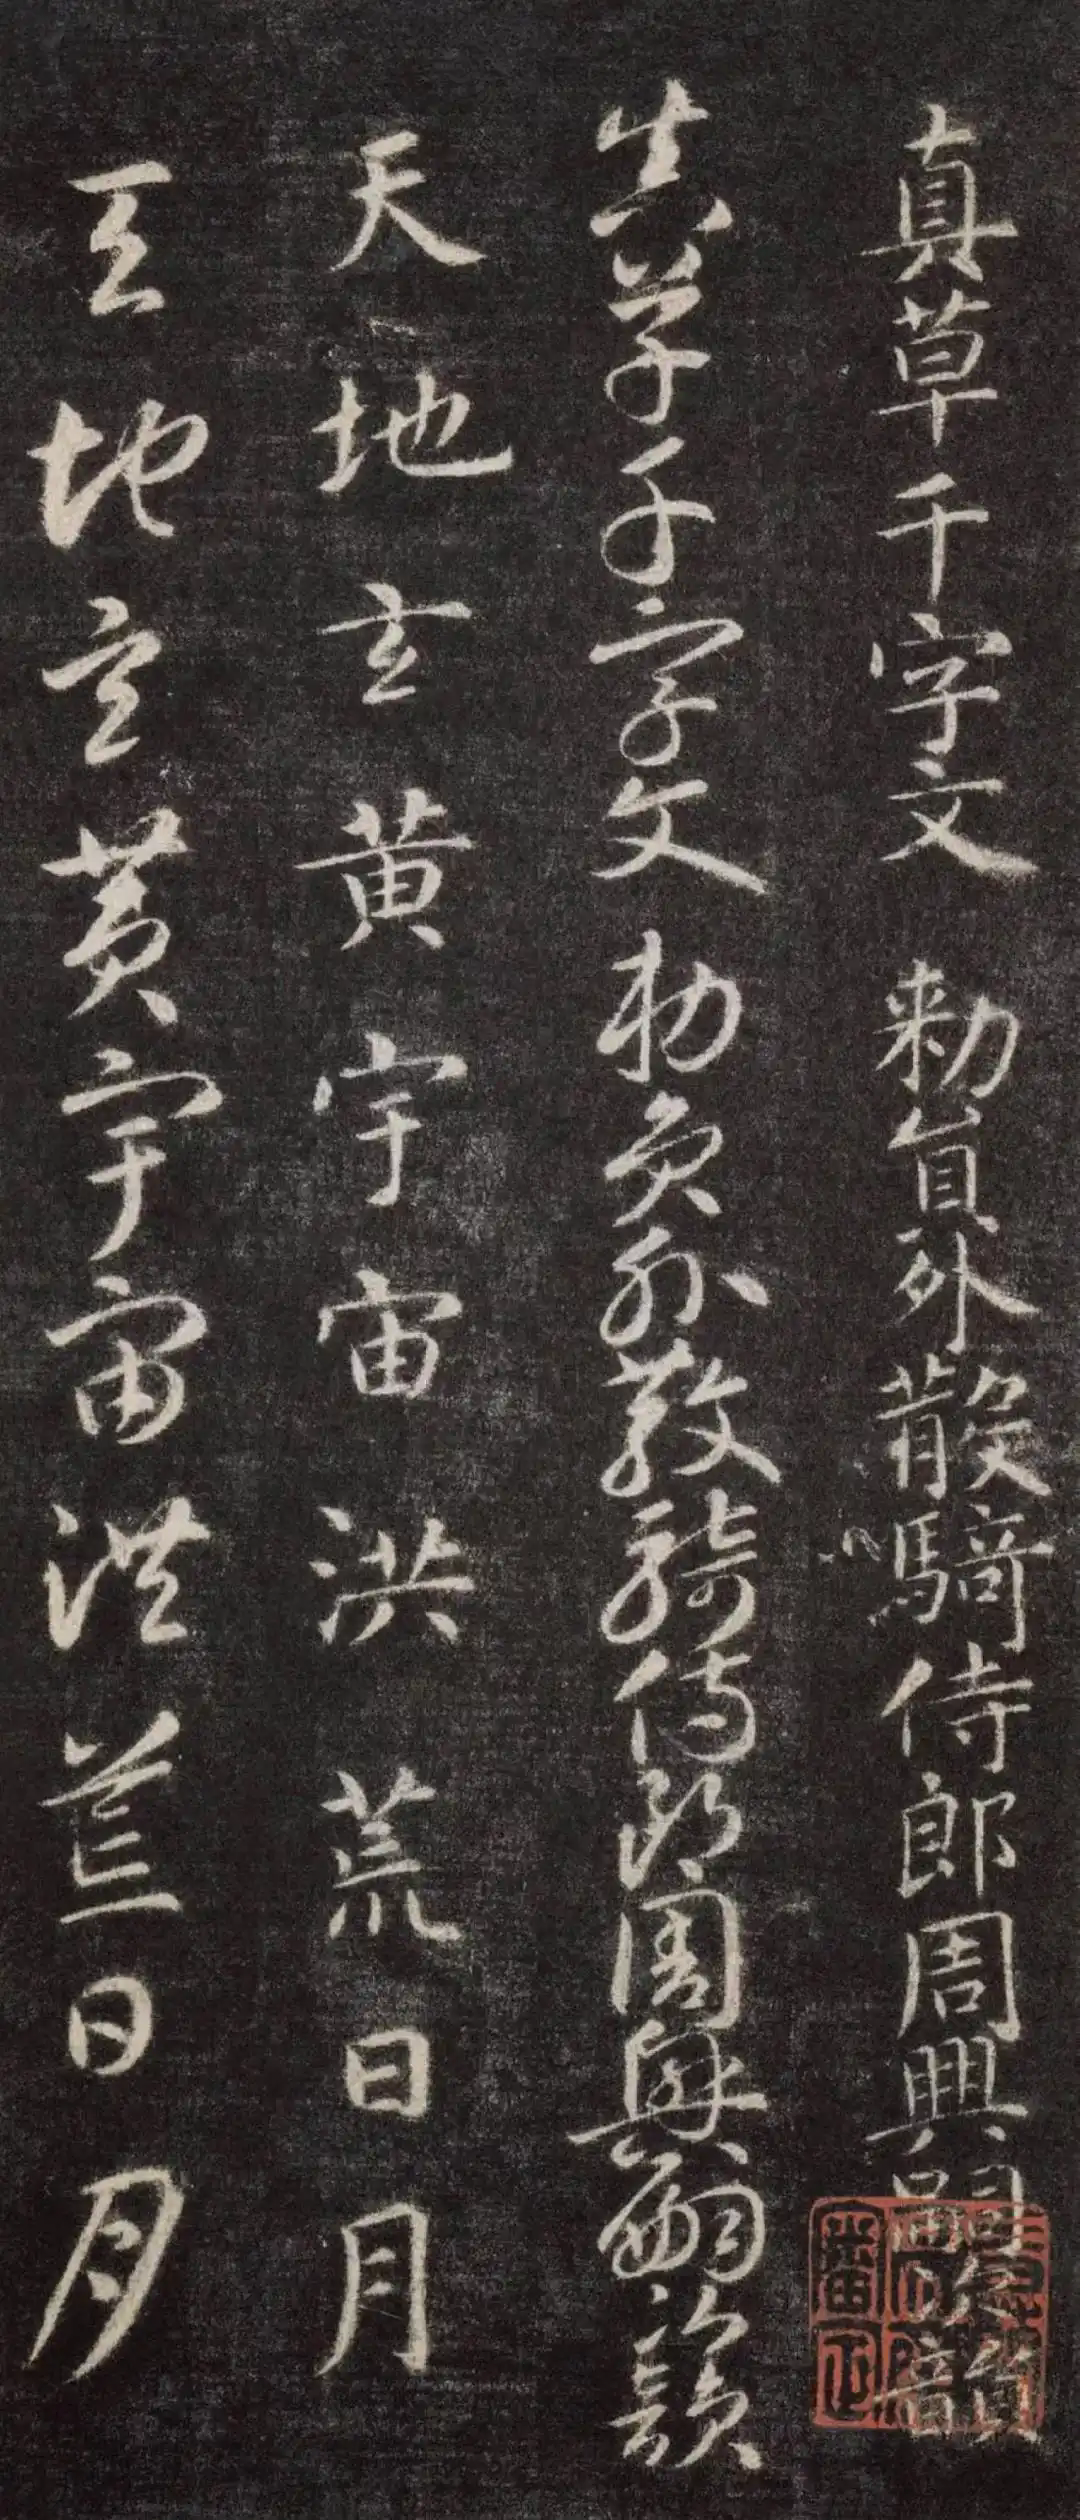 真草千字文 敕員外散騎侍郎周興嗣次韻
真草千字文 敕員外散騎侍郎周興嗣次韻
天地玄黃宇宙洪荒日月
天地玄黃宇宙洪荒日月